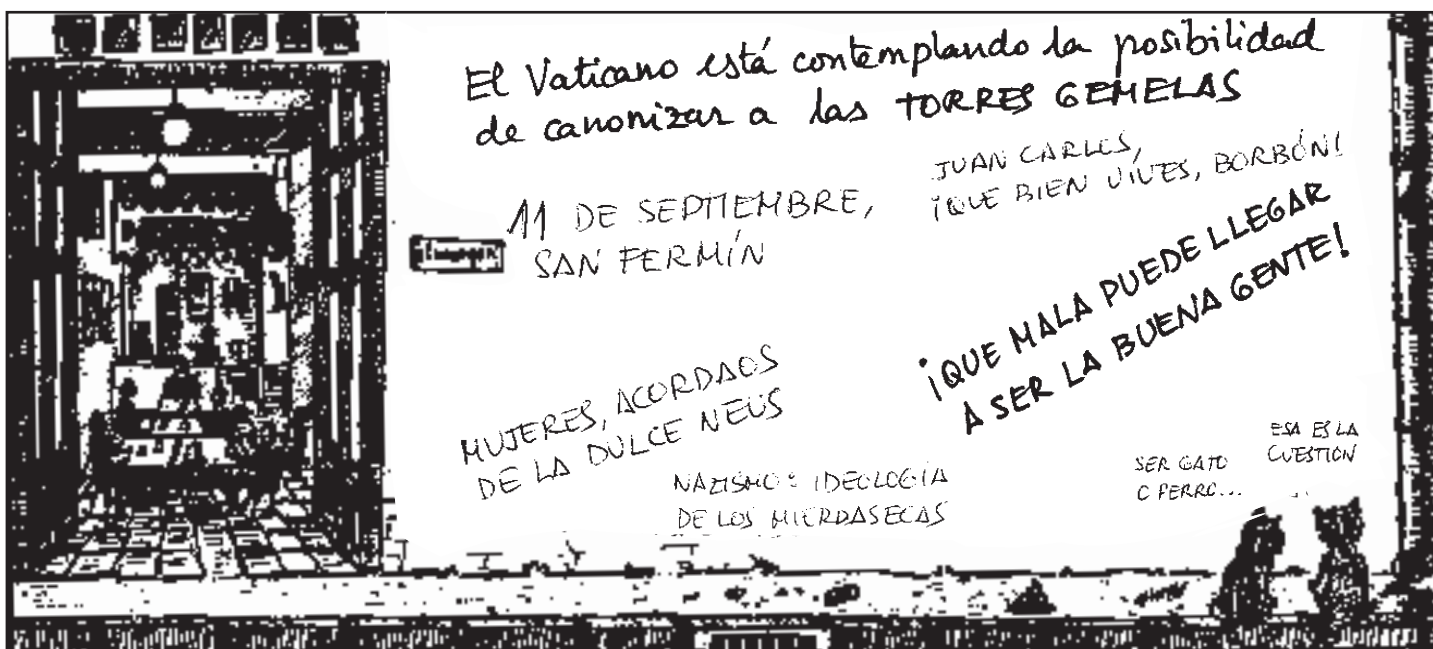 El Vaticano está contemplando la posibilidad
de canonizar a las TORRES GEMELAS
JUAN CARLOS,
¡QUE BIEN VIVES, BORBÓN!
11 DE SEPTIEMBRE,
SAN FERMÍN
¡QUE MALA PUEDE LLEGAR
A SER LA BUENA GENTE!
MUJERES, ACORDAOS
DE LA DULCE NEUS
NAZISMO: IDEOLOGÍA
DE LOS MIERDASECAS
SER GATO
O PERRO...
ESA ES LA
CUESTION